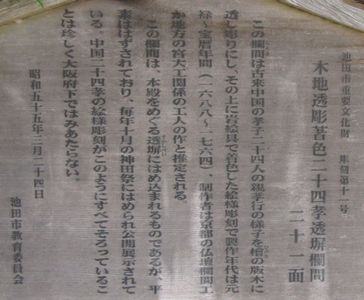 池田市重要文化財　彫刻第十一号
木地透彫著色二十四孝透塀欄間
二十一面
この欄間は古来中国の孝子二十四人の親孝行の様子を檜の版木に
透し彫りにし、その上に岩絵具で着色した絵様彫刻で製作年代は元
禄～宝暦年間（一六八八～一七六四）、制作者は京都の仏壇欄間工
か地方の宮大工関係の工人の作と推定される。
この欄間は、本殿をめぐる透塀にはめ込まれるものであるが、平
素ははずされており、毎年十月の神田祭にはめられ公開展示されて
いる。中国二十四孝の絵様彫刻がこのようにすべてそろっているこ
とは珍しく大阪府下ではみあたらない。
昭和五十五年三月二十四日
池田市教育委員会